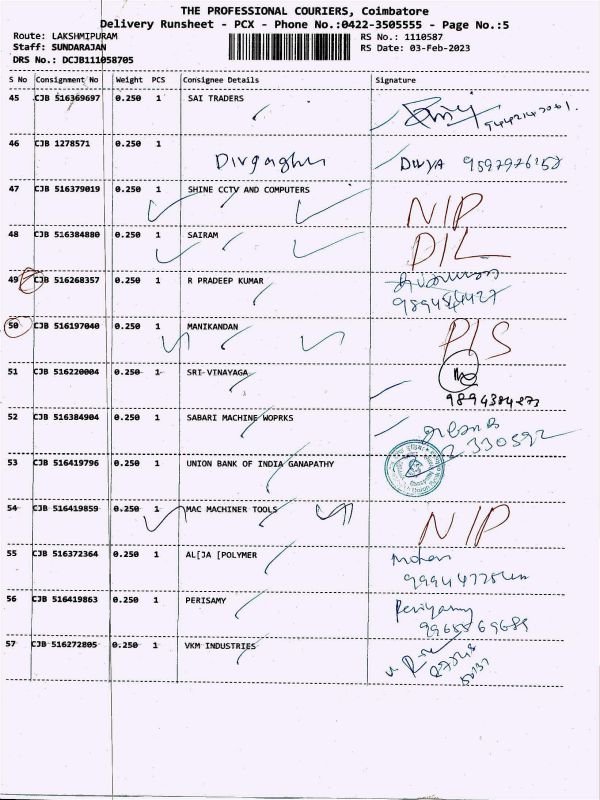 THE PROFESSIONAL COURIERS, Coimbatore
Delivery Runsheet - PCX - Phone No.:0422-3505555 - Page No.:5
Route: LAKSHMIPURAM RS No.: 1110587
Staff: SUNDARAJAN RS Date: 03-Feb-2023
DRS No.: DCJB111058705
S No Consignment No Weight PCS Consignee Details Signature
45 CJB 516369697 0.250 1 SAI TRADERS
46 CJB 1278571 0.250 1
DIVYA
47 CJB 516379019 0.250 1 SHINE CCTV AND COMPUTERS
N/P
48 CJB 516384880 0.250 1 SAIRAM
D/L
49 CJB 516268357 0.250 1 R PRADEEP KUMAR
50 CJB 516197040 0.250 1 MANIKANDAN
P/S
51 CJB 516220004 0.250 1 SRI VINAYAGA
9894384273
52 CJB 516384904 0.250 1 SABARI MACHINE WOPRKS
2330592
53 CJB 516419796 0.250 1 UNION BANK OF INDIA GANAPATHY
54 CJB 516419859 0.250 1 MAC MACHINER TOOLS
N/P
55 CJB 516372364 0.250 1 AL[JA [POLYMER
Mohan
56 CJB 516419863 0.250 1 PERISAMY
Periyamy
9965569689
57 CJB 516272805 0.250 1 VKM INDUSTRIES